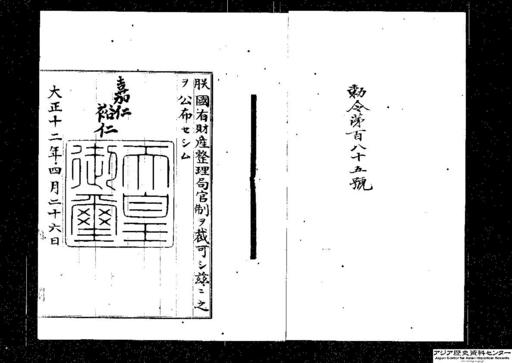 勅令第百八十五號
朕國有財産整理局官制ヲ裁可シ茲ニ之
ヲ公布セシム
嘉仁
裕仁
天皇御璽
大正十二年四月二十六日
アジア歴史資料センター
Japan Center for Asian Historical Records